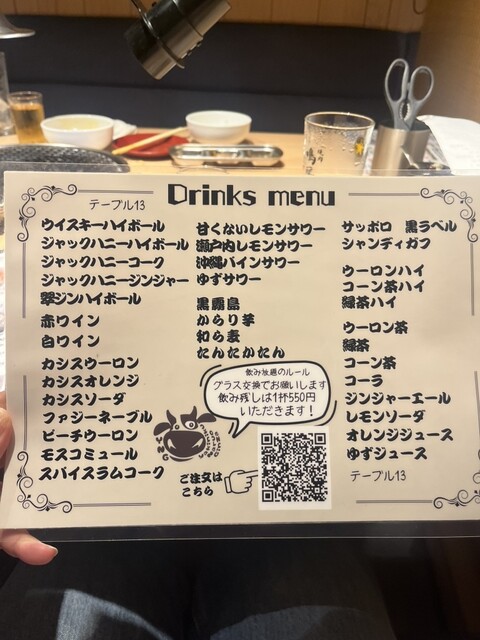 Drinks menu
テーブル13
ウイスキーハイボール
ジャックハニーハイボール
ジャックハニーコーク
ジャックハニージンジャー
翠ジンハイボール
赤ワイン
白ワイン
カシスウーロン
カシスオレンジ
カシスソーダ
ファジーネーブル
ピーチウーロン
モスコミュール
スパイスラムコーク
甘くないレモンサワー
瀬戸内レモンサワー
沖縄パインサワー
ゆずサワー
黒霧島
からり芋
和ら麦
たんたかたん
飲み放題のルール
グラス交換でお願いします
飲み残しは1杯550円
いただきます！
ご注文は
こちら
サッポロ 黒ラベル
シャンディガフ
ウーロンハイ
コーン茶ハイ
緑茶ハイ
ウーロン茶
緑茶
コーン茶
コーラ
ジンジャーエール
レモンソーダ
オレンジジュース
ゆずジュース
テーブル13